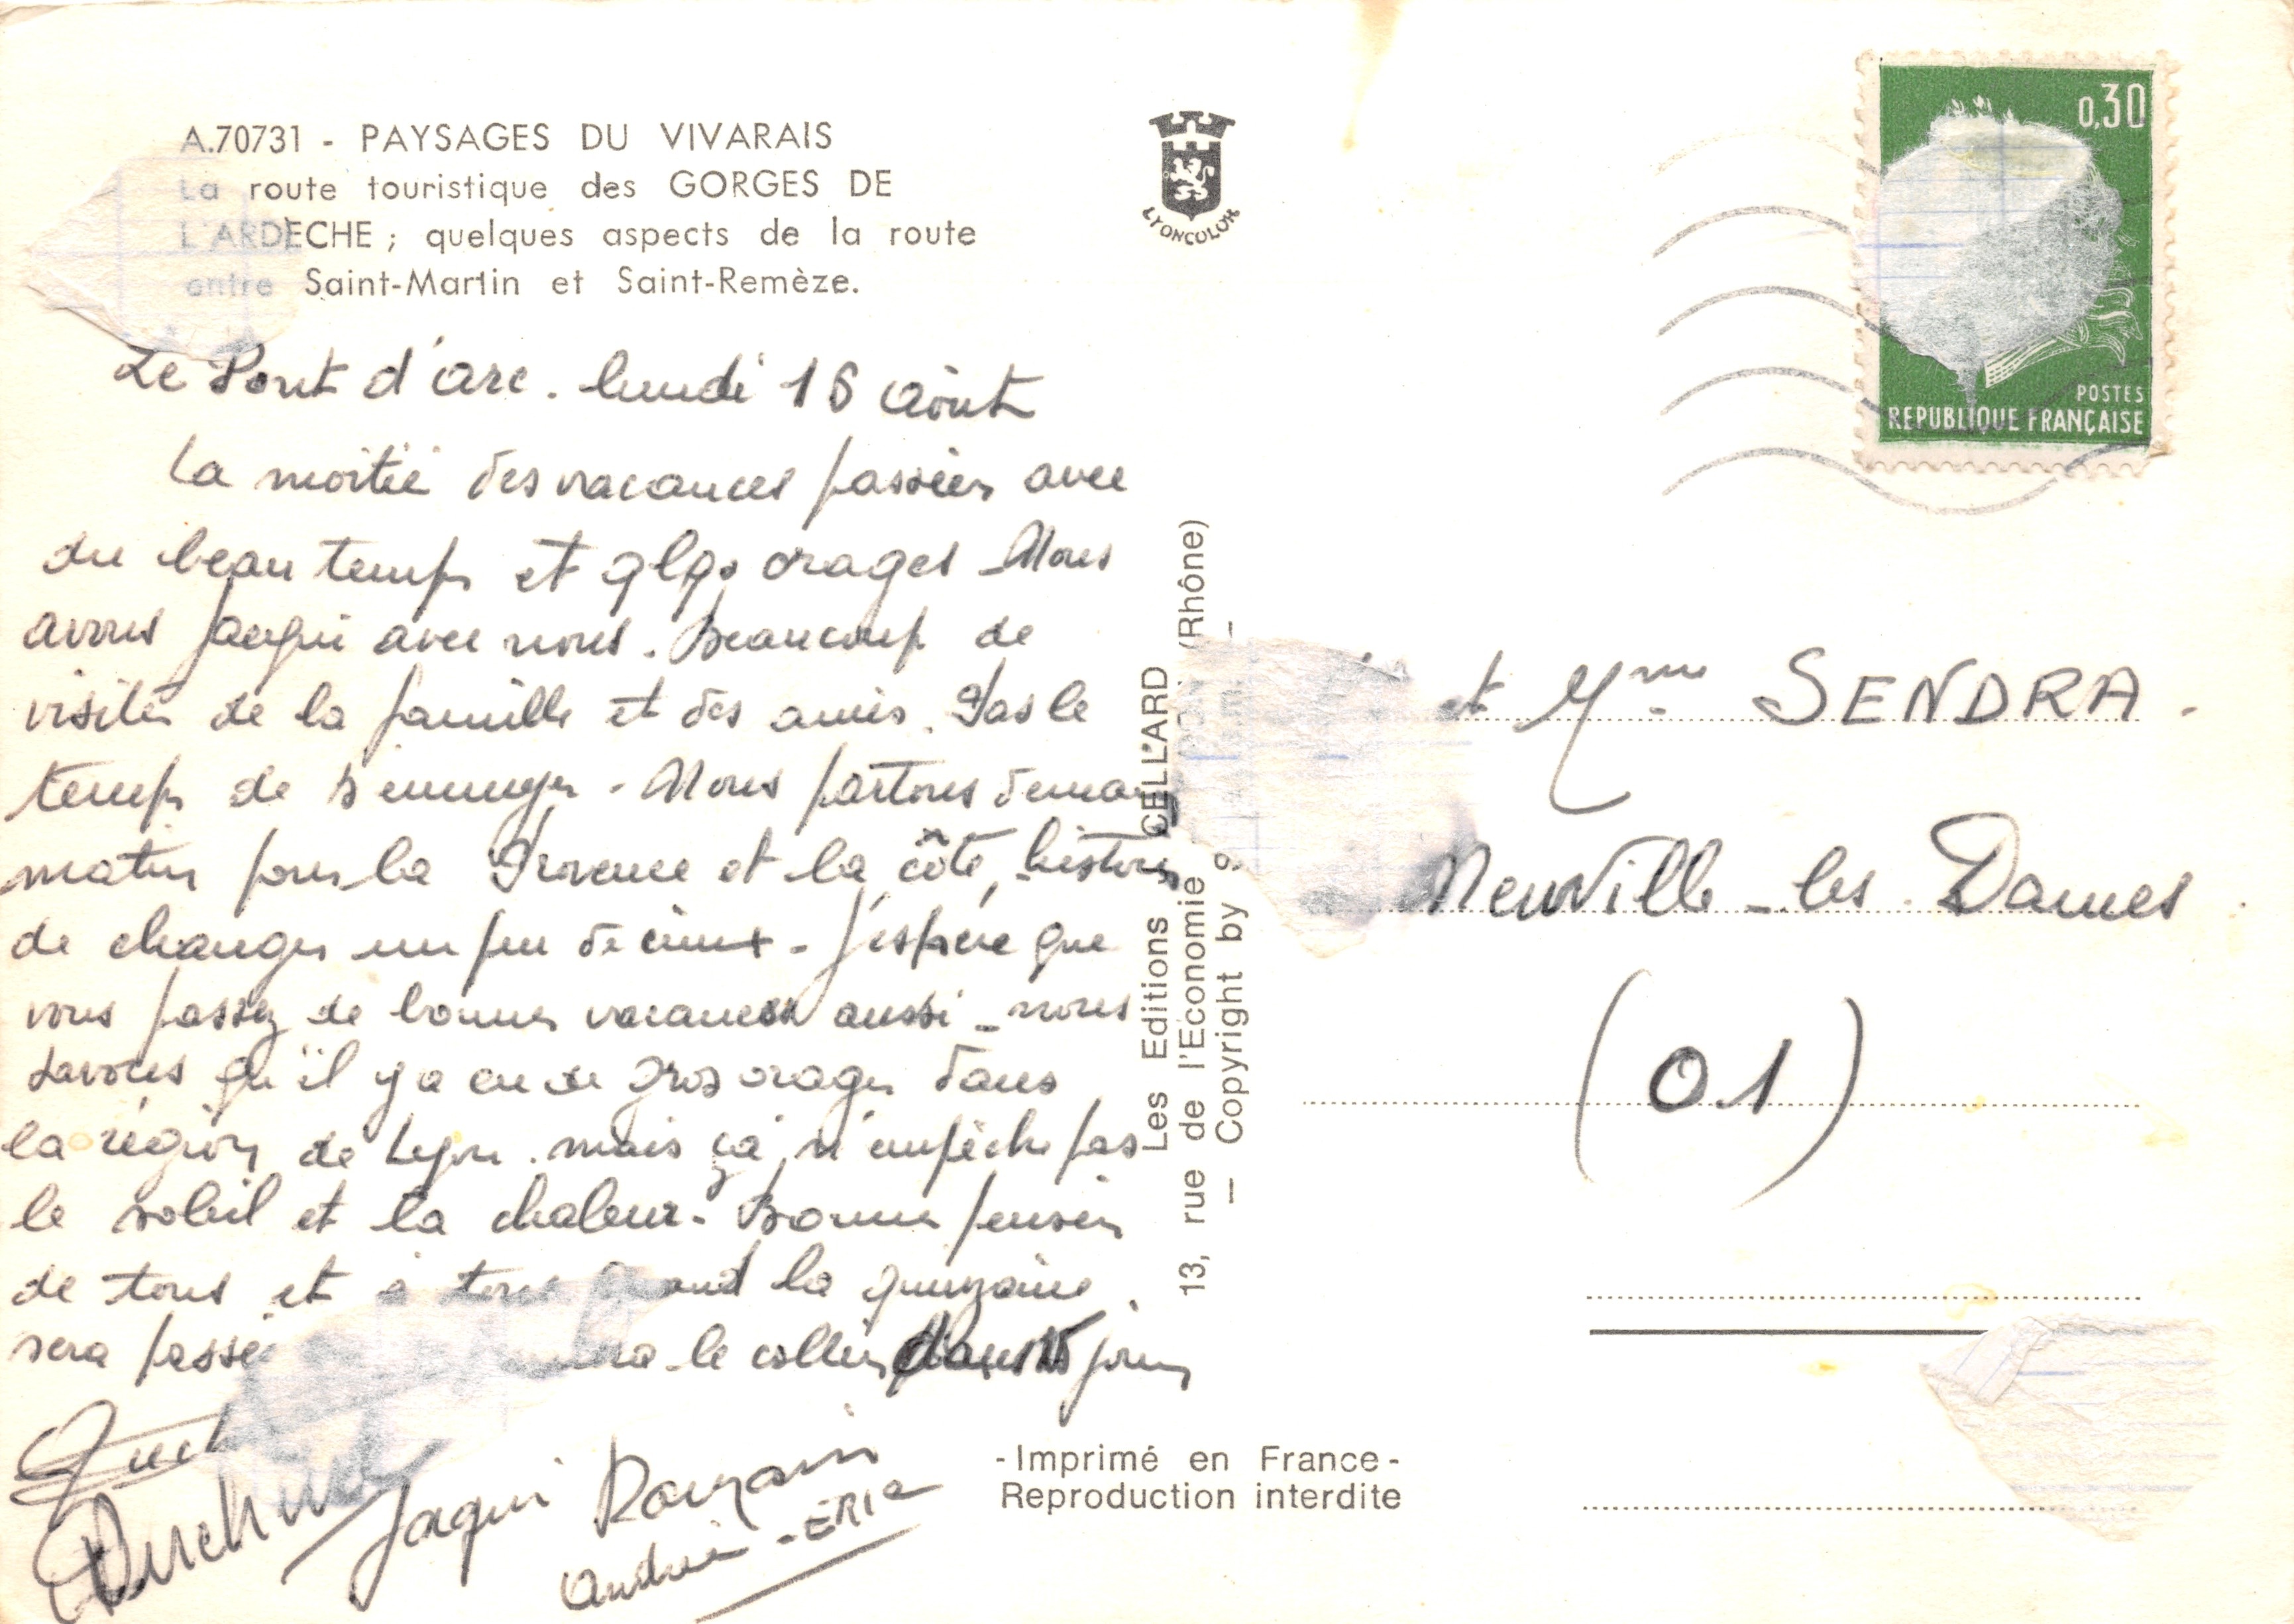 A.70731 - PAYSAGES DU VIVARAIS
La route touristique des GORGES DE
L'ARDÈCHE ; quelques aspects de la route
entre Saint-Martin et Saint-Remèze.
LYONCOLOR
0,30
POSTES
REPUBLIQUE FRANÇAISE
Le Pont d'arc. lundi 16 Août
La moitié des vacances passées avec
du beau temps et qlqs orages - Nous
avons Jacqui avec nous. Beaucoup de
visites de la famille et des amis. Pas le
temps de s'ennuyer - Nous partons demain
matin pour la Provence et la côte, histoire
de changer un peu de cieux - J'espère que
vous passez de bonnes vacances aussi - nous
savons qu'il y a eu de gros orages dans
la région de Lyon. mais ça n'empêche pas
le soleil et la chaleur. Bonnes pensées
de tous et à tous quand la quinzaine
sera passée le collier dans jours
Jacqui Romain
Andrée - ERIC
Les Editions CELLARD
13, rue de l'Economie (Rhône)
— Copyright by
- Imprimé en France -
Reproduction interdite
et Mme SENDRA.
Neuville-les-Dames
(01)